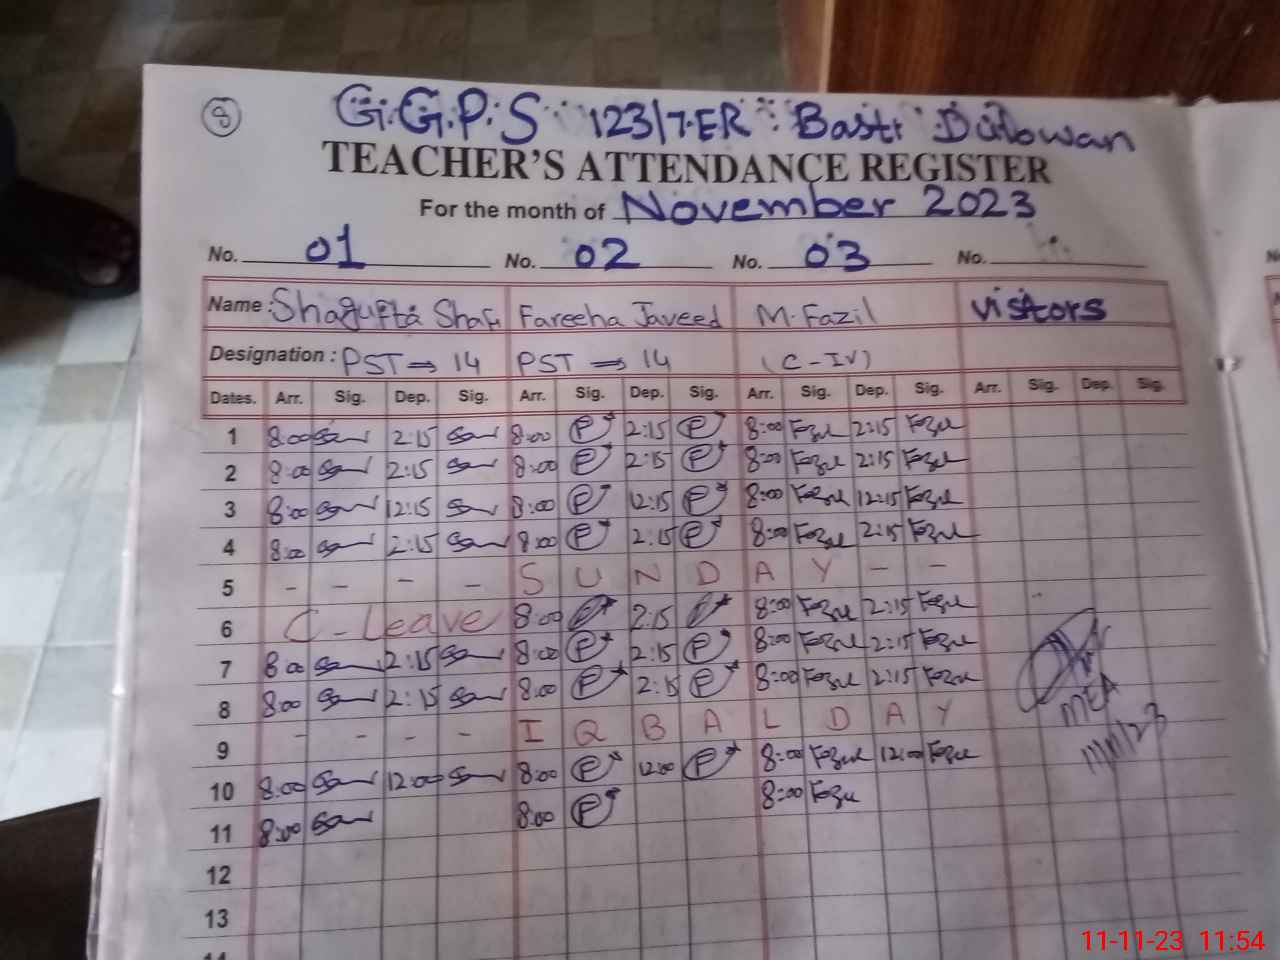 8
G.G.P.S 123/7.ER Basti Dulowan
TEACHER'S ATTENDANCE REGISTER
For the month of November 2023
No. 01 No. 02 No. 03 No.
Name: Shagufta Shafi Fareeha Javeed M. Fazil visitors
Designation: PST ⇒ 14 PST ⇒ 14 (C-IV)
Dates. Arr. Sig. Dep. Sig. Arr. Sig. Dep. Sig. Arr. Sig. Dep. Sig. Arr. Sig. Dep. Sig.
1 8:00 2:15 8:00 2:15 8:00 2:15
2 8:00 2:15 8:00 2:15 8:00 2:15
3 8:00 12:15 8:00 12:15 8:00 12:15
4 8:00 2:15 8:00 2:15 8:00 2:15
5 - - - - S U N D A Y - -
6 C-Leave 8:00 2:15 8:00 2:15
7 8:00 2:15 8:00 2:15 8:00 2:15
8 8:00 2:15 8:00 2:15 8:00 2:15
MEA
9 - - - - I Q B A L D A Y
11/11/23
10 8:00 12:00 8:00 12:00 8:00 12:00
11 8:00 8:00 8:00
12
13
14
11-11-23 11:54